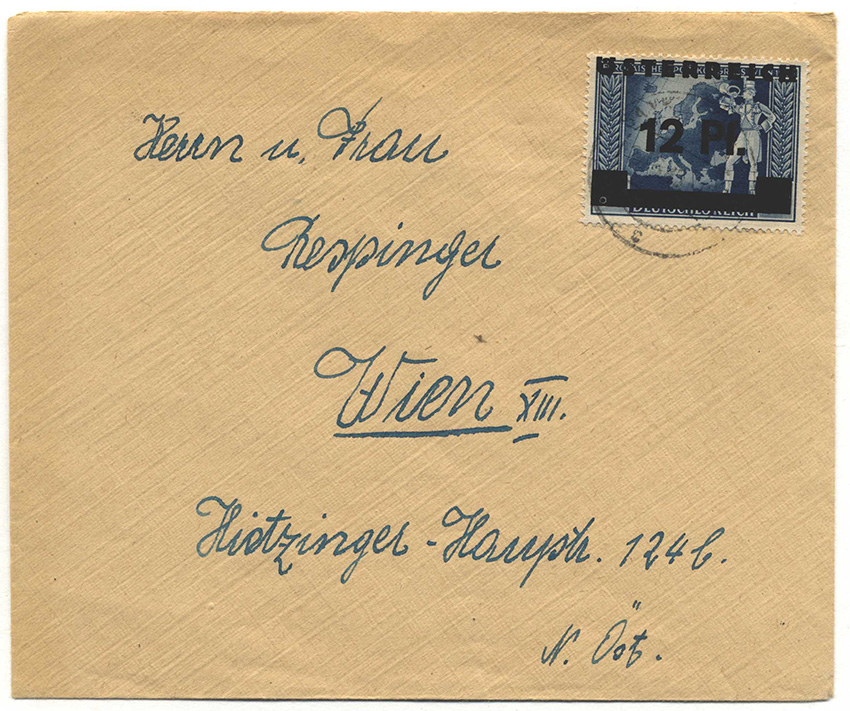 ÖSTERREICH
12 Pf.
DEUTSCHES REICH
Herrn u. Frau
Respinger
Wien XIII.
Hietzinger-Hauptstr. 124 b.
N. Öst.